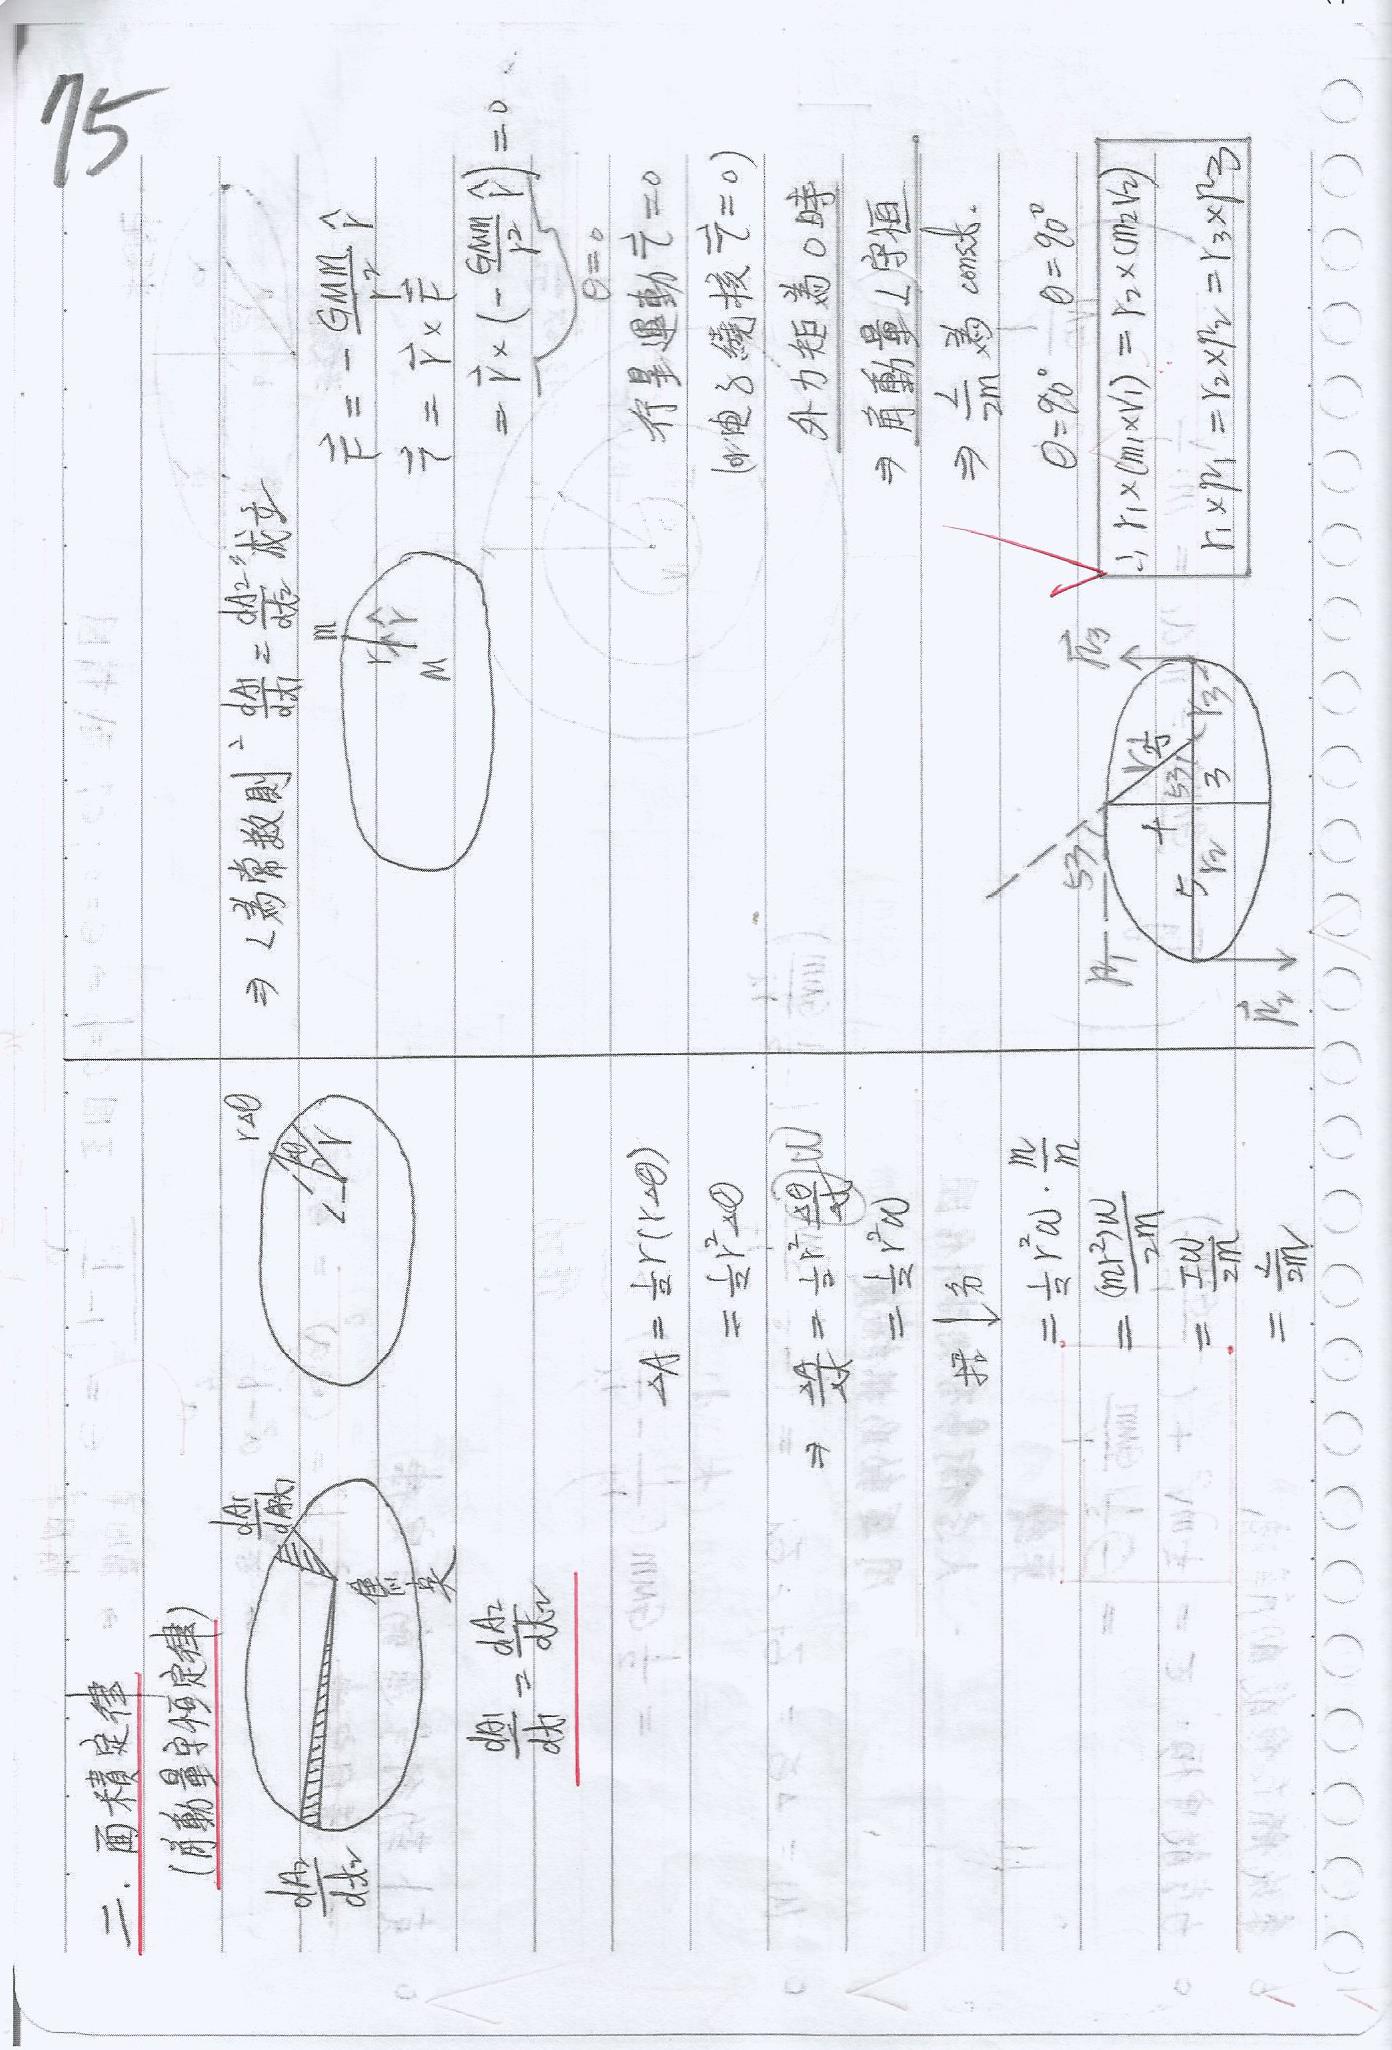 75
二. 面積定律
(角動量守恆定律)
dA₂/dt₂
dA₁/dt₁
恆星
dA₁/dt₁ = dA₂/dt₂
r△θ
△θ
r
L
△A = ½r(r△θ)
= ½r²△θ
⇒ △A/△t = ½r² △θ/△t
= ½r²ω
拆↓分
= ½r²ω · m/m
= (mr²)ω/2m
= Iω/2m
= L/2m
⇒ L為常數則 "dA₁/dt₁ = dA₂/dt₂" 成立
m
r
r̂
M
F⃗ = - GMm/r² r̂
τ⃗ = r⃗ × F⃗
= r⃗ × (- GMm/r² r̂) = 0
θ=0
行星運動 τ⃗=0
(or 電子繞核 τ⃗=0)
外力矩為0時
⇒ 角動量L守恆
⇒ L/2m 為 const.
P⃗₁
53
r₁
5
4
53
3
5
r₂
r₃
P⃗₂
P⃗₃
θ=90° θ=90°
∴ r₁×(m₁×v₁) = r₂×(m₂v₂)
r₁×P₁ = r₂×P₂ = r₃×P₃